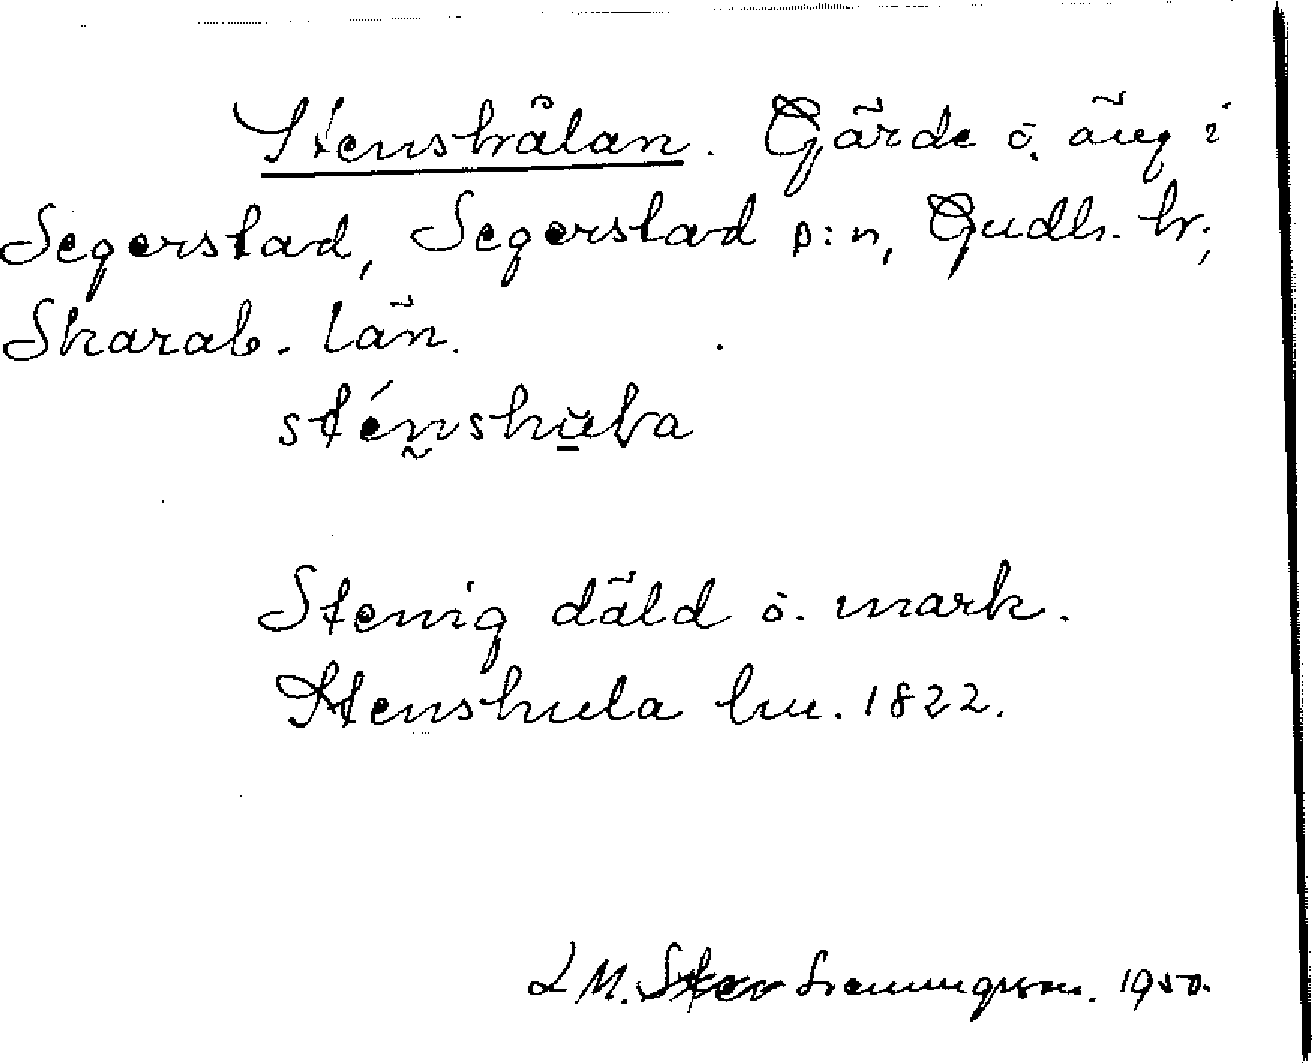 Stenskålan. Gärde o. äng i
Segerstad, Segerstad s:n, Gudh. hr.,
Skarab. län.
Stenig däld o. mark.
Stenskula lm. 1822.
1950.